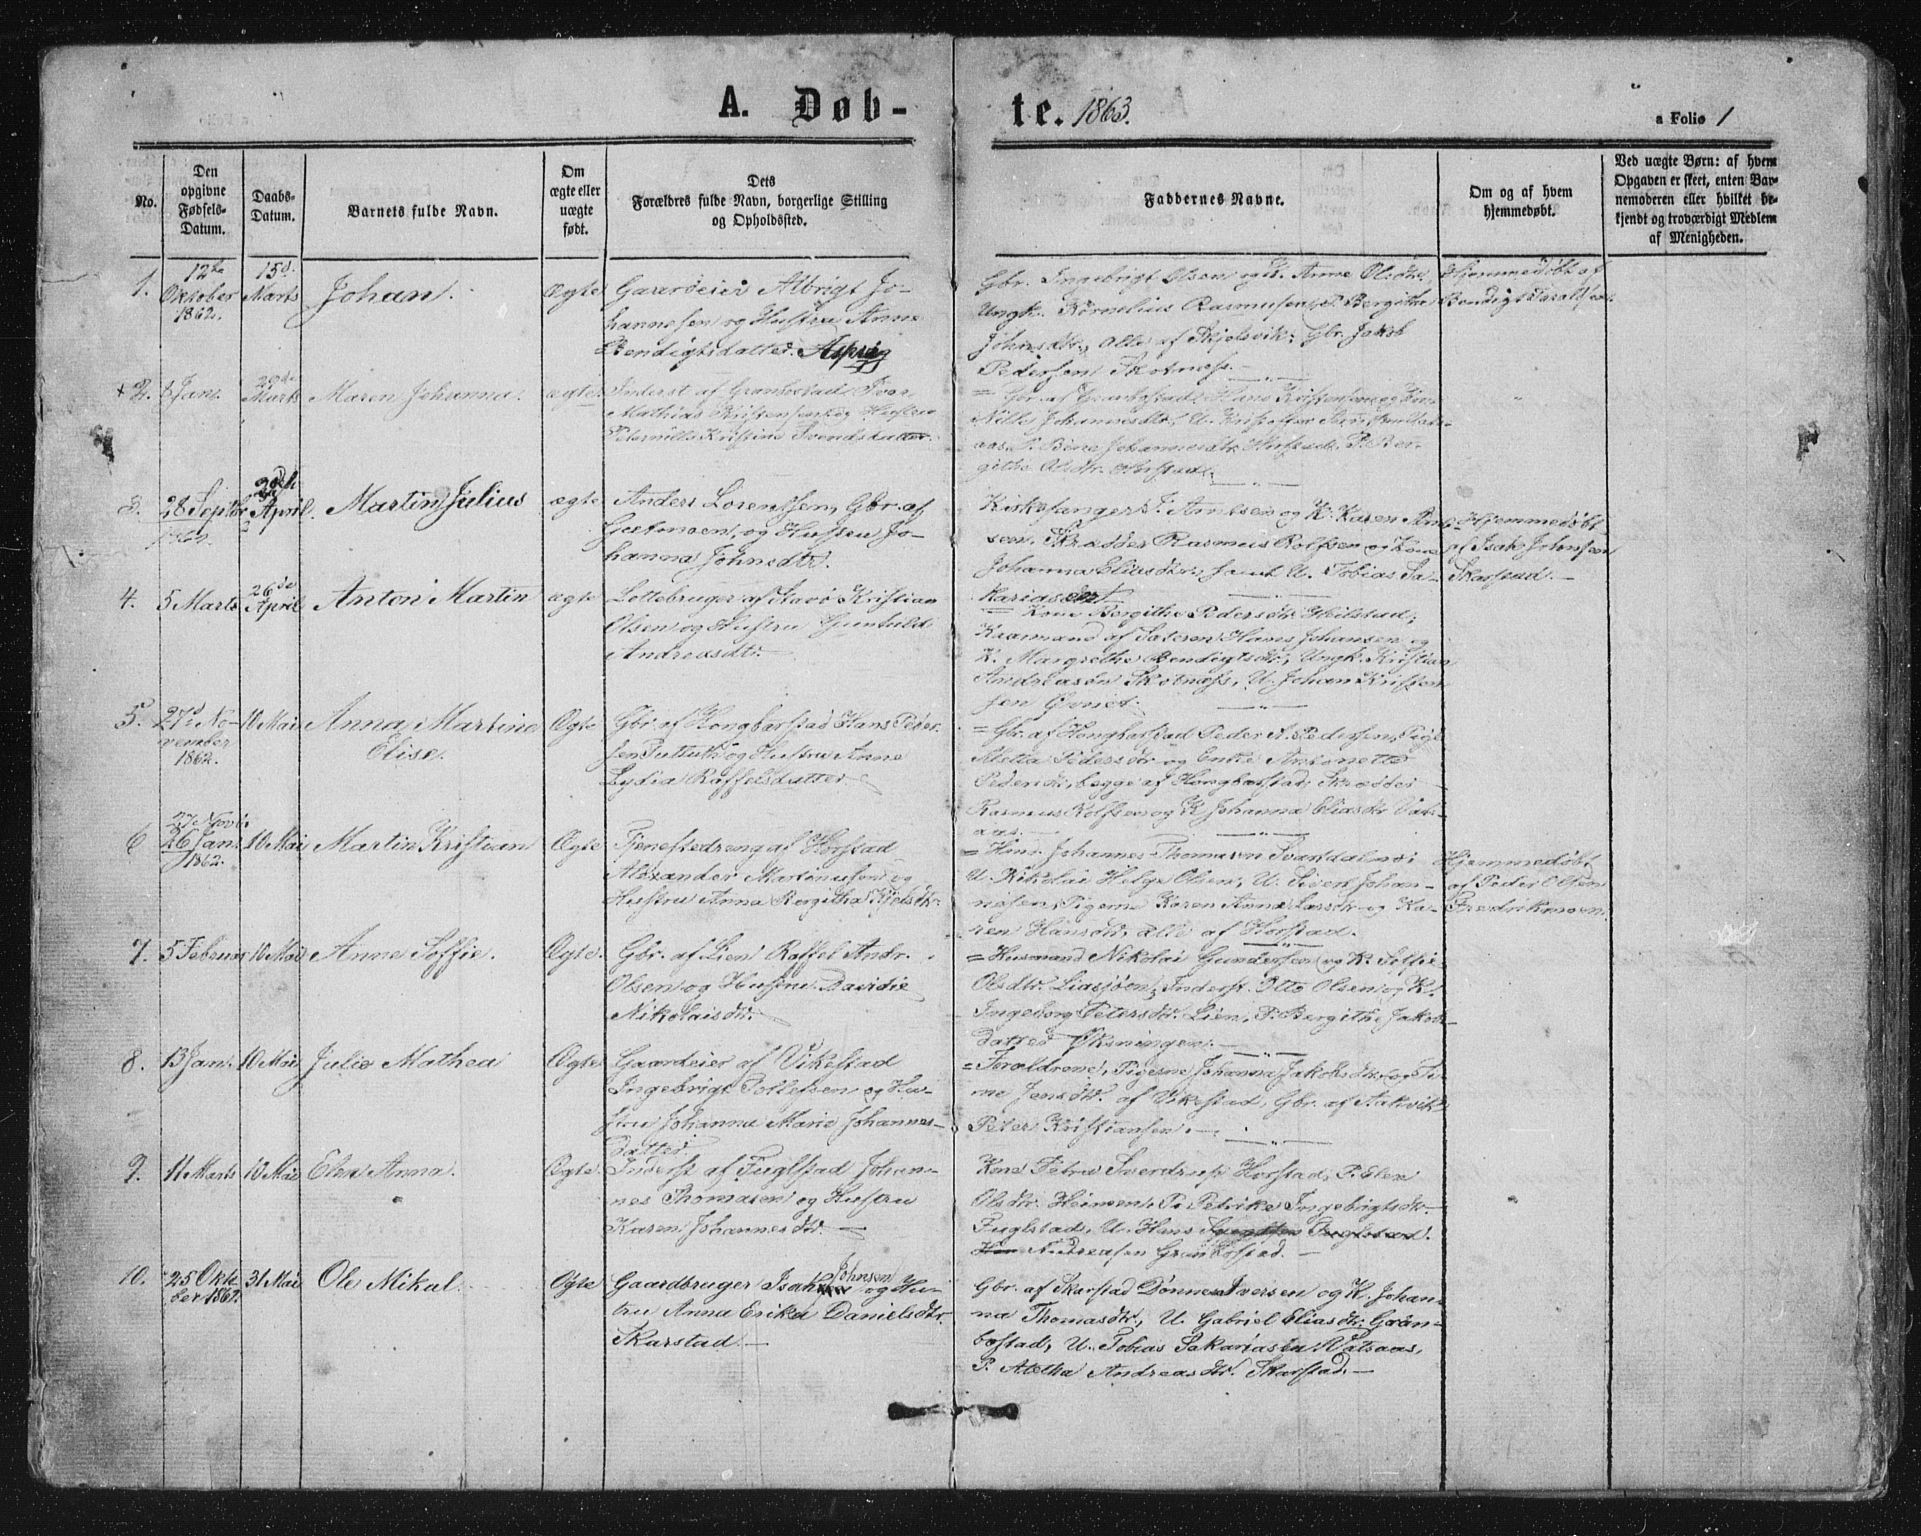 A. Døbte. 1863.
a Folio 1
No.
Den opgivne Fødsels-Datum.
Daabs-Datum.
Barnets fulde Navn.
Om ægte eller uægte født.
Dets Forældres fulde Navn, borgerlige Stilling og Opholdssted.
Faddernes Navne.
Om og af hvem hjemmedøbt.
Ved uægte Børn: af hvem Opgaven er skeet, enten Barnemoderen eller hvilket bekjendt og troværdigt Medlem af Menigheden.
1.
12te Oktober 1862.
15d. Marts
Johan.
Ægte
Gaardeier Albrigt Jo-
hannesen og Hustru Anne
Bendigtsdatter.
Gbr. Ingebrigt Olsen og K. Anne Olsdtr.
Ungk. Kornelius Rasmusen, P. Bergithe
Johnsdtr., alle af Skjelsvik; Gbr. Jakob
Pedersen Skotnæss.
Hjemmedøbt af
2.
Jan.
29de Marts
Maren Johanna.
ægte
Inderst af Grønbostad Iver
Mathias Kristensen og Hustru
Kristine Svendsdatter.
3.
28 Septbr
April
Martin Julius
ægte
Anders Lorentsen, Gbr. af
og Hustru Jo-
hanna Johnsdtr.
Kirkesanger
Skrædder Rasmus Rolfsen og Kone
Johanna Eliasdtr., samt U. Tobias Sa-
kariassen
Hjemmedøbt
af Isak Johnsen
Skarstad.
4.
5 Marts
26de April
Anton Martin
ægte
Kristian
Olsen og Hustru Gunhild
Andreasdtr.
Kone Bergithe Pedersdtr.
Hans Johansen og
K. Margrethe Bendigtsdtr., Ungk. Kristian
Andreasen Skotnæss, U. Johan Kristen-
sen
5.
27d. No-
vember
1862.
10 Mai
Anna Martine
Elise.
Ægte
Gbr. af Hongbarstad Hans Peder-
sen og Hustru Anne
Lydia Raffelsdatter.
Gbr. af Hongbarstad Peder A. Pedersen, Pige
Metta Pedersdtr og Enke Antonette
Pedersdtr, begge af Hongbarstad; Skrædder
Rasmus Rolfsen og K. Johanna Eliasdtr Vats-
aas.
6
27 Novb.
26 Jan.
1862.
10 Mai
Martin Kristian
Ægte
Tjenestedreng af Horstad
Alexander Martinussen og
Hustru Anna Bergitha Kjelsdtr.
Hmd. Johannes Thomasen Svartdalmoi
U. Nikolai Helge Olsen, U. Sivert Johan-
nesen, Pigerne Karen Anna Larsdtr og Ka-
ren Hansdtr, alle af Horstad.
Hjemmedøbt
af Peder Olsen
Fredrikmoen.
7.
5 Februar
10 Mai
Anne Soffie.
Ægte
Gbr. af Lien Raffel Andr.
Olsen og Hustru Davidie
Nikolaisdtr.
Husmand Nikolai Gundersen og K. Soffie
Olsdtr. Liasjøen; Inderst Otto Olsen og K.
Ingeborg Petersdtr. Lien, P. Bergithe Jakobs-
datter Øksningen.
8.
13 Jan.
10 Mai
Julie Mathea
Ægte
Gaardeier af Vikestad
Ingebrigt Tollefsen og Hu-
stru Johanna Marie Johannes-
datter.
Forældrene, Pigerne Johanna Jakobsdtr og Ti-
ne Jensdtr. af Vikestad, Gbr. af Aakvik
Peter Kristiansen.
9.
11 Marts
10 Mai
Elen Anna.
Ægte
Inderst af Fuglstad Johan-
nes Thomasen og Hustru
Karen Johannesdtr.
Kone Petra Sverdrup Horstad, P. Elen
Olsdtr. Heimen, P. Petrike Ingebrigtsdtr
Fuglstad, U. Hans
Andreasen Grønbostad.
10.
25 Okto-
ber 1862.
31 Mai
Ole Mikal.
Ægte
Gaardbruger Isak Johnsen og Hu-
stru Anna Erika Danielsdtr.
Skarstad
Gbr. af Skarstad Dønnes Iversen og K. Johan-
na Thomasdtr, U. Gabriel Eliasdtr. Grøn-
bostad, U. Tobias Sakariasen Vatsaas,
P. Aletha Andreasdtr. Skarstad.